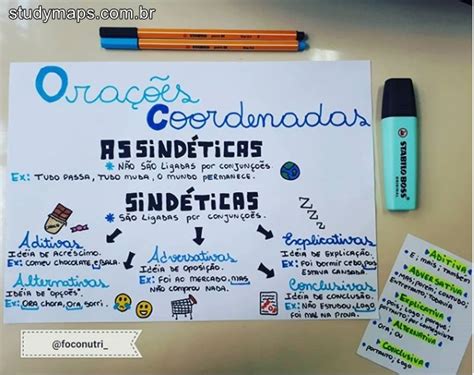 studymaps.com.br
Orações
Coordenadas
ASSINDÉTICAS
* NÃO SÃO LIGADAS POR CONJUNÇÕES.
EX: TUDO PASSA, TUDO MUDA, O MUNDO PERMANECE.
SINDÉTICAS
* SÃO LIGADAS POR CONJUNÇÕES.
Aditivas
IDEIA DE ACRÉSCIMO.
EX: COMEU CHOCOLATE E BALA.
Alternativas
IDEIA DE "OPÇÕES".
EX: ORA CHORA, ORA SORRI.
Adversativas
IDEIA DE OPOSIÇÃO.
EX: FOI AO MERCADO, MAS
NÃO COMPROU NADA.
Explicativas
IDEIA DE EXPLICAÇÃO.
EX: FOI DORMIR CEDO, POIS
ESTAVA CANSADA.
Conclusivas
IDEIA DE CONCLUSÃO.
EX: NÃO ESTUDOU, LOGO
FOI MAL NA PROVA.
@foconutri_
STABILO BOSS
ADITIVA
E, mais, também
ADVERSATIVA
Mas, porém, contudo,
Entretanto, todavia
EXPLICATIVA
ALTERNATIVA
Ora, ou
CONCLUSIVA
Portanto, logo